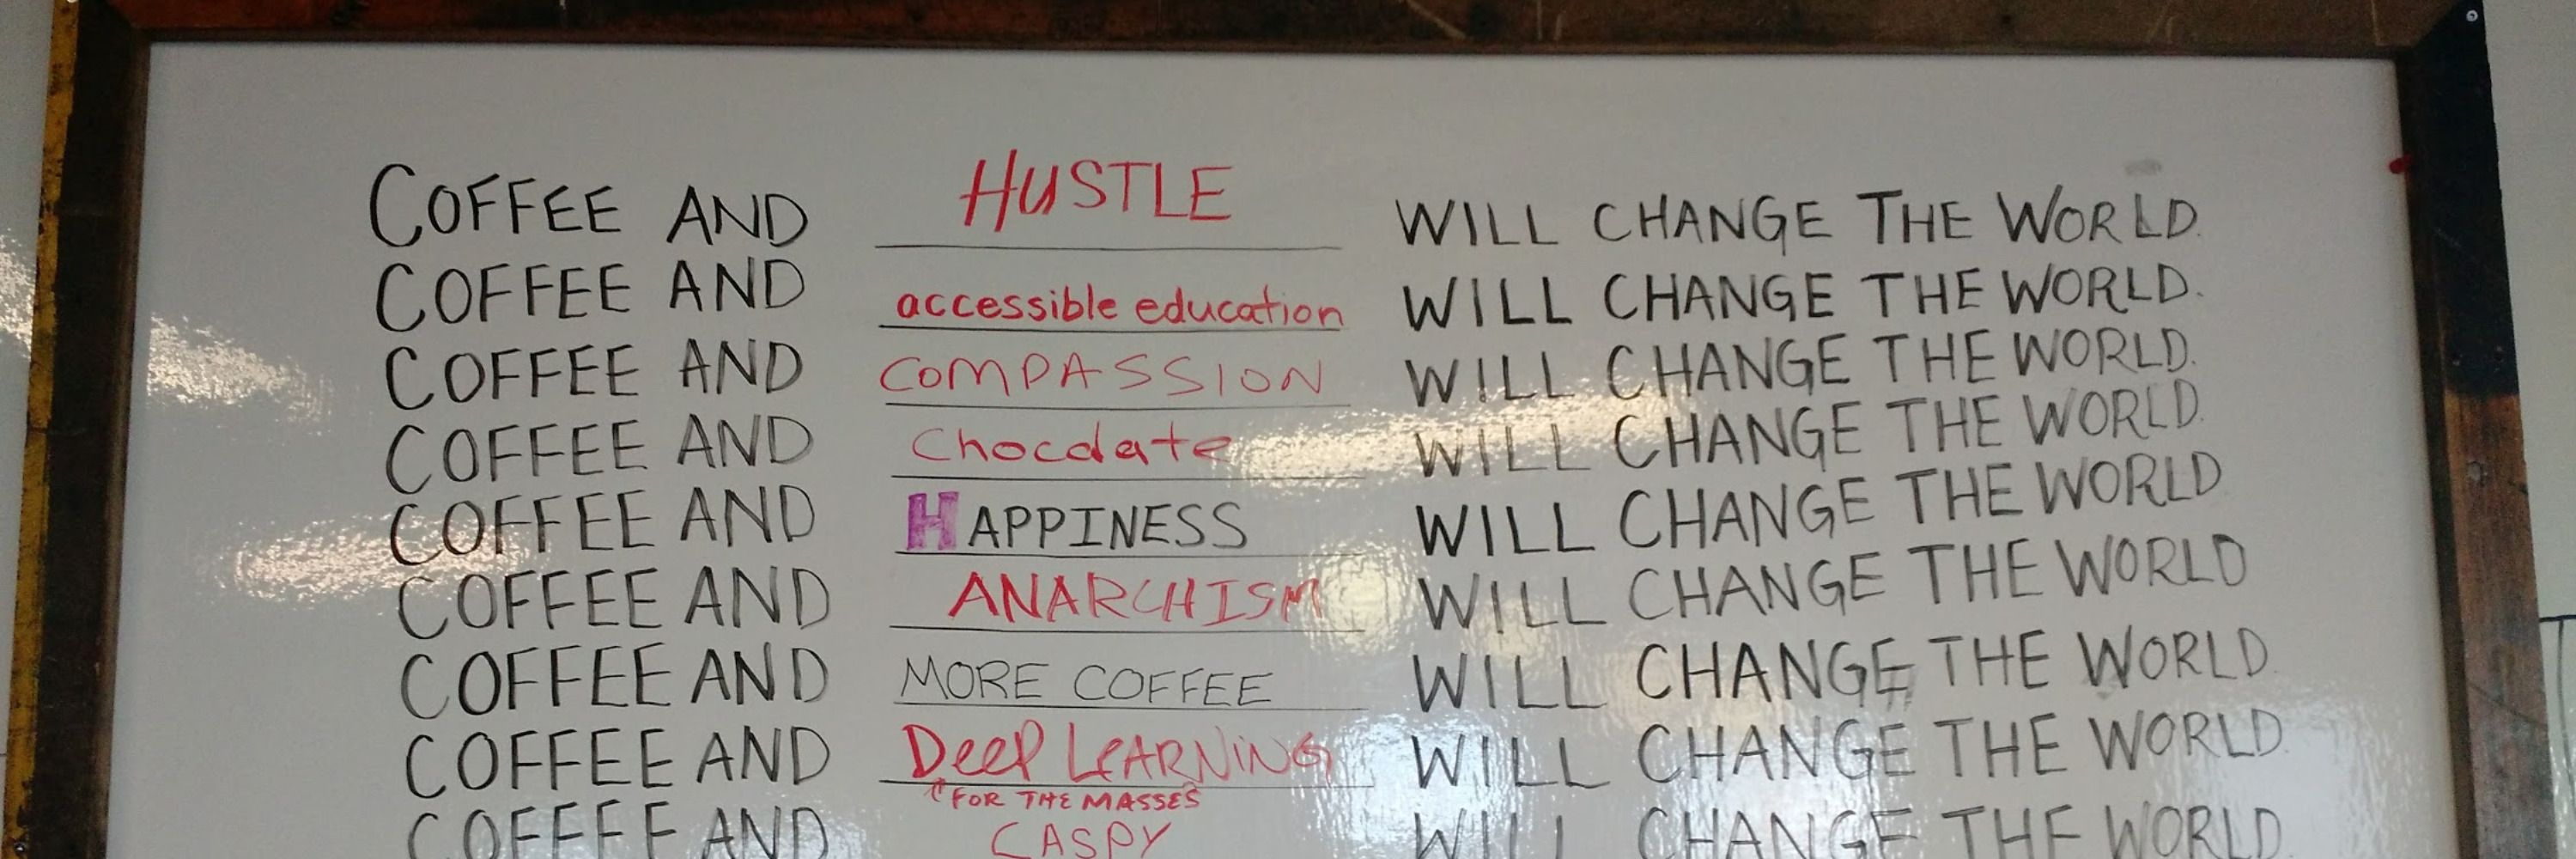 COFFEE AND HUSTLE WILL CHANGE THE WORLD.
COFFEE AND accessible education WILL CHANGE THE WORLD.
COFFEE AND COMPASSION WILL CHANGE THE WORLD.
COFFEE AND Chocolate WILL CHANGE THE WORLD.
COFFEE AND HAPPINESS WILL CHANGE THE WORLD
COFFEE AND ANARCHISM WILL CHANGE THE WORLD
COFFEE AND MORE COFFEE WILL CHANGE THE WORLD.
COFFEE AND Deep LeARNiNG WILL CHANGE THE WORLD.
FOR THE MASSES
COFFEE AND CASPY WILL CHANGE THE WORLD.